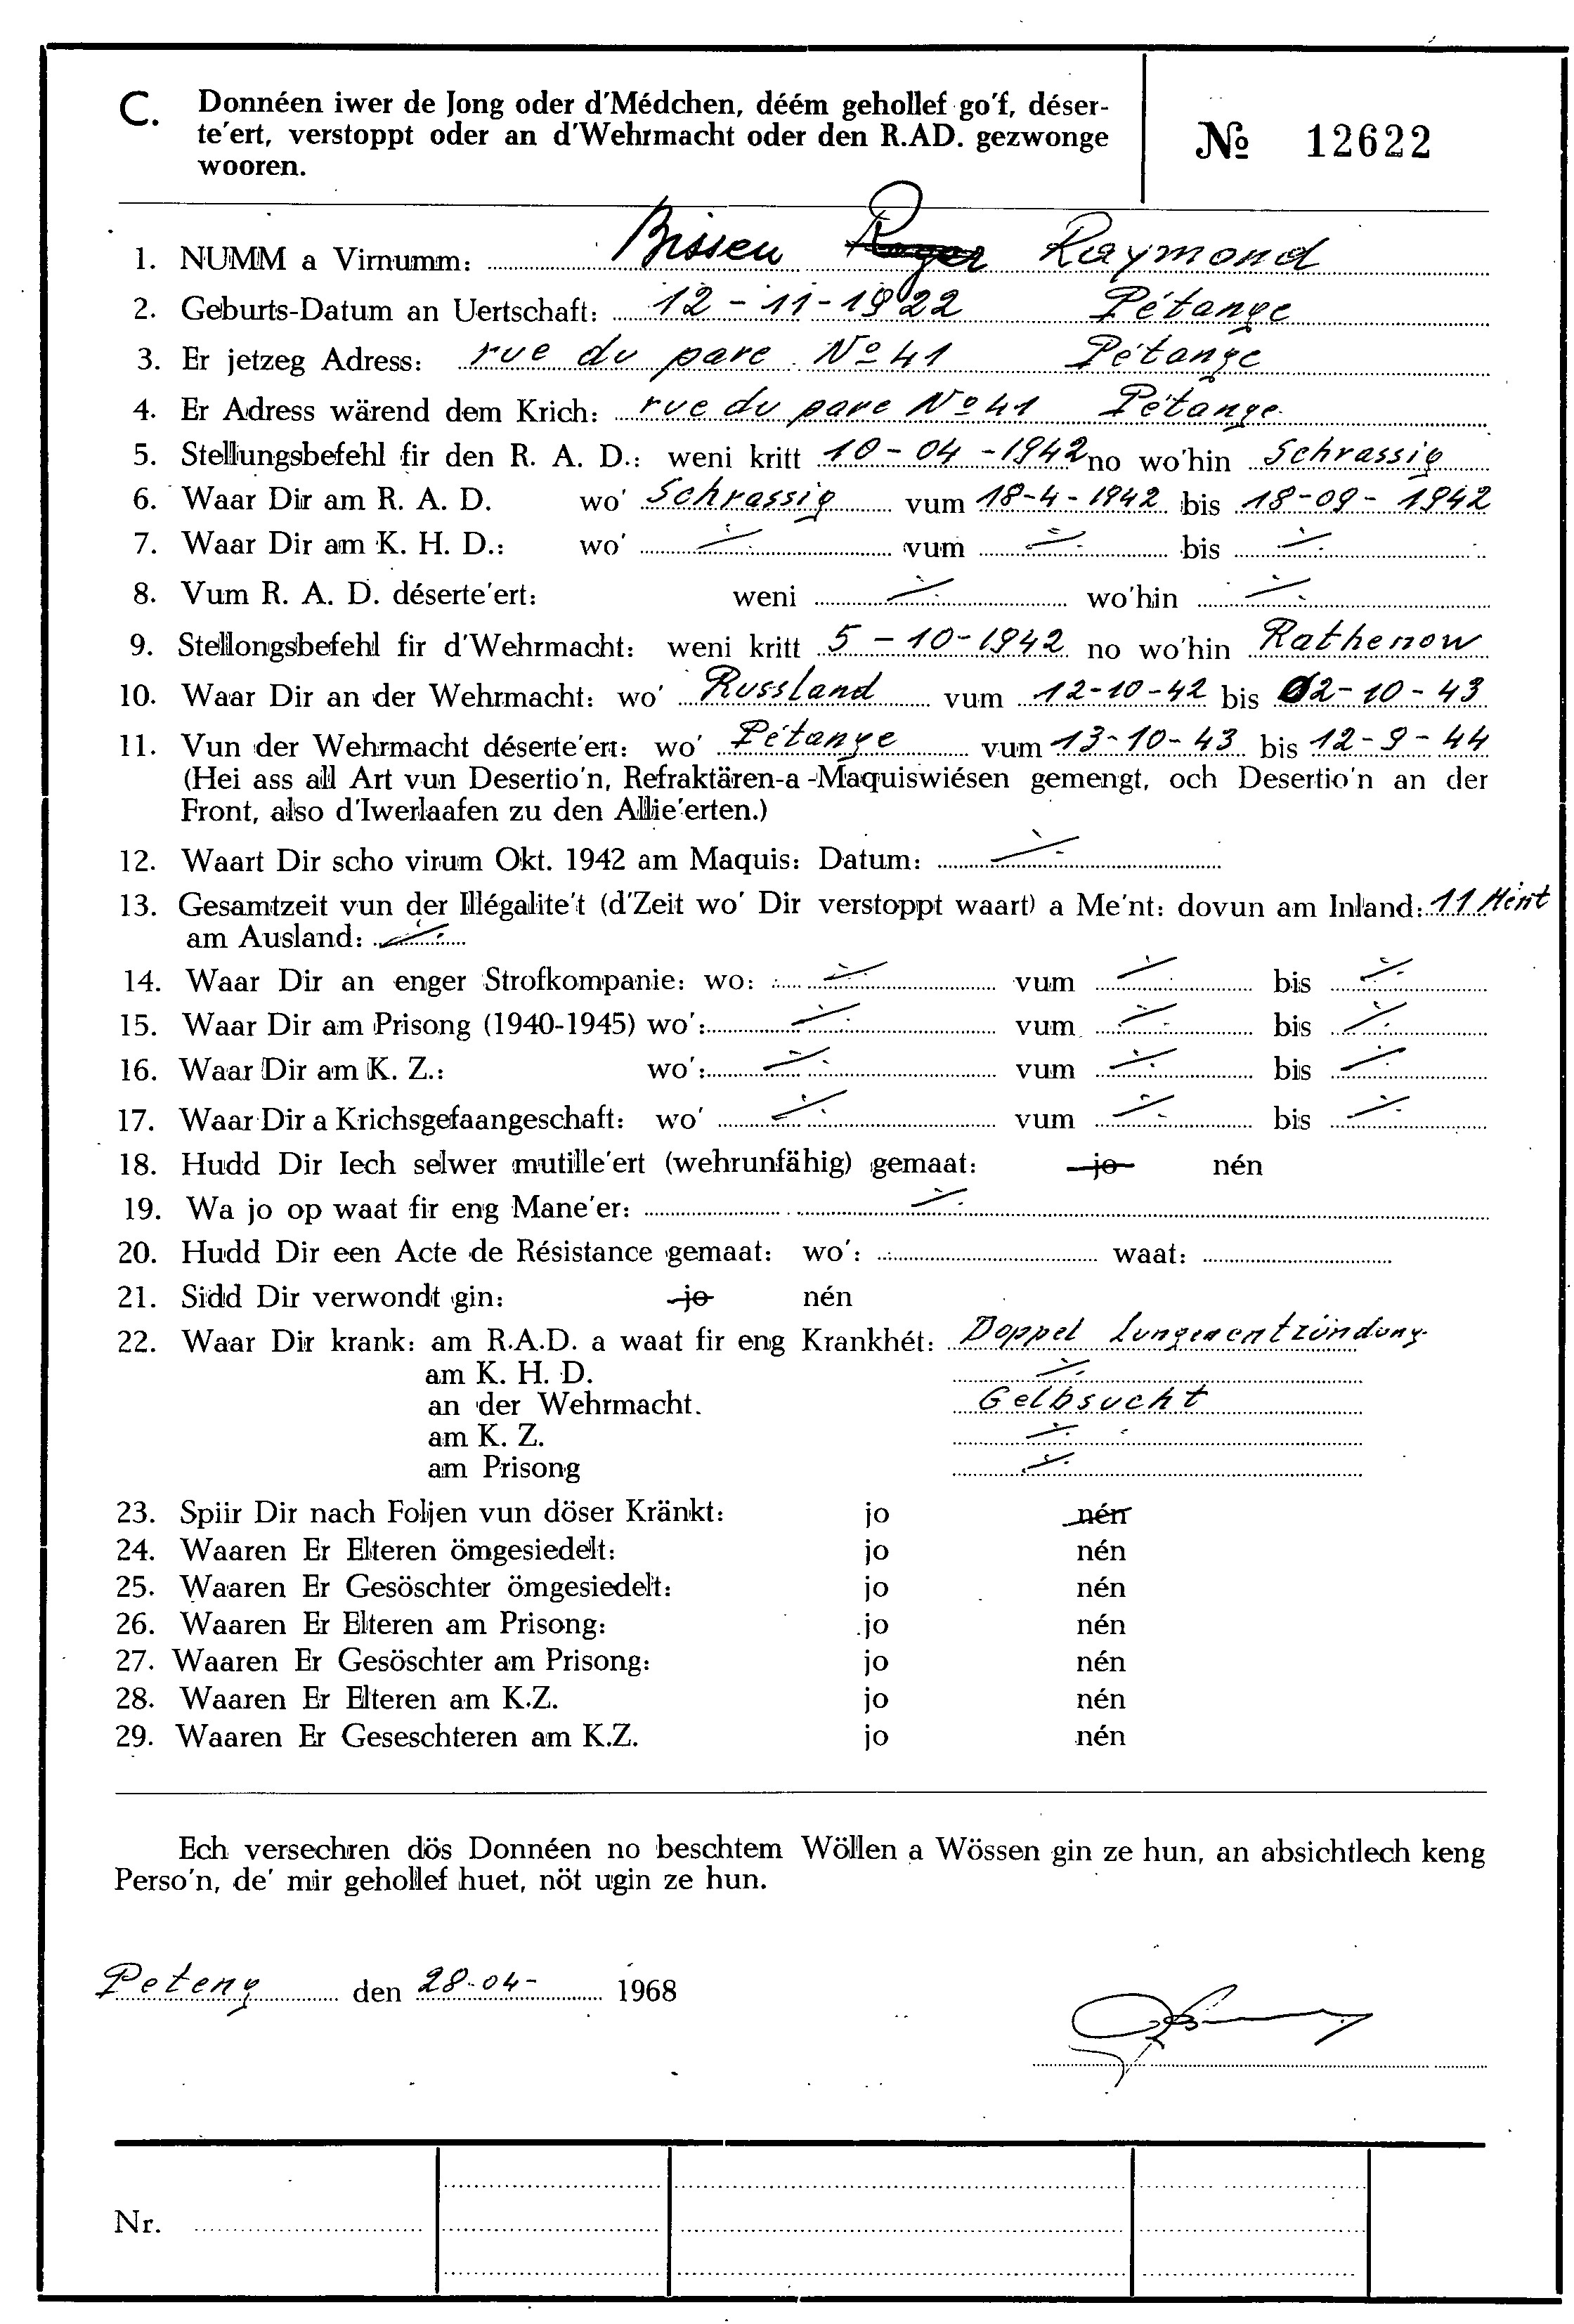 C. Donnéen iwer de Jong oder d'Médchen, déém gehollef go'f, déser-
te'ert, verstoppt oder an d'Wehrmacht oder den R.AD. gezwonge
wooren.
№ 12622
1. NUMM a Virnumm: Bissen Roger Raymond
2. Geburts-Datum an Uertschaft: 12-11-1922 Pétange
3. Er jetzeg Adress: rue du parc No 41 Pétange
4. Er Adress wärend dem Krich: rue du parc No 41 Pétange
5. Stellungsbefehl fir den R. A. D.: weni kritt 10-04-1942 no wo'hin Schrassig
6. Waar Dir am R. A. D. wo' Schrassig vum 18-4-1942 bis 18-09-1942
7. Waar Dir am K. H. D.: wo' ·/. vum ·/. bis ·/.
8. Vum R. A. D. déserte'ert: weni ·/. wo'hin ·/.
9. Stellongsbefehl fir d'Wehrmacht: weni kritt 5-10-1942 no wo'hin Rathenow
10. Waar Dir an der Wehrmacht: wo' Russland vum 12-10-42 bis 02-10-43
11. Vun der Wehrmacht déserte'ert: wo' Pétange vum 13-10-43 bis 12-9-44
(Hei ass all Art vun Desertio'n, Refraktären-a -Maquiswiésen gemengt, och Desertio'n an der
Front, also d'Iwerlaafen zu den Allie'erten.)
12. Waart Dir scho virum Okt. 1942 am Maquis: Datum: ·/.
13. Gesamtzeit vun der Illégalite't (d'Zeit wo' Dir verstoppt waart) a Me'nt: dovun am Inland: 11 Ment
am Ausland: ·/.
14. Waar Dir an enger Strofkompanie: wo: ·/. vum ·/. bis ·/.
15. Waar Dir am Prisong (1940-1945) wo': ·/. vum ·/. bis ·/.
16. Waar Dir am K. Z.: wo': ·/. vum ·/. bis ·/.
17. Waar Dir a Krichsgefaangeschaft: wo' ·/. vum ·/. bis ·/.
18. Hudd Dir Iech selwer mutille'ert (wehrunfähig) gemaat: jo nén
19. Wa jo op waat fir eng Mane'er: ·/.
20. Hudd Dir een Acte de Résistance gemaat: wo': waat:
21. Sidd Dir verwondt gin: jo nén
22. Waar Dir krank: am R.A.D. a waat fir eng Krankhét: Doppel Lungenentzündung
am K. H. D. ·/.
an der Wehrmacht. Gelbsucht
am K. Z. ·/.
am Prisong ·/.
23. Spiir Dir nach Foljen vun döser Kränkt: jo nén
24. Waaren Er Elteren ömgesiedelt: jo nén
25. Waaren Er Gesöschter ömgesiedelt: jo nén
26. Waaren Er Elteren am Prisong: jo nén
27. Waaren Er Gesöschter am Prisong: jo nén
28. Waaren Er Elteren am K.Z. jo nén
29. Waaren Er Geseschteren am K.Z. jo nén
Ech versechren dös Donnéen no beschtem Wöllen a Wössen gin ze hun, an absichtlech keng
Perso'n, de' mir gehollef huet, nöt ugin ze hun.
Peteng den 28-04- 1968
Nr.